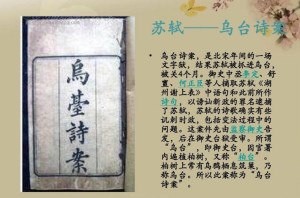 苏轼——乌台诗案
烏臺詩案
• 乌台诗案，是北宋年间的一场
文字狱，结果苏轼被抓进乌台，
被关4个月。御史中丞李定、舒
亶、何正臣等人摘取苏轼《湖
州谢上表》中语句和此前所作
诗句，以谤讪新政的罪名逮捕
了苏轼，苏轼的诗歌确实有些
讥刺时政，包括变法过程中的
问题。这案件先由监察御史告
发，后在御史台狱受审。所谓
“乌台”，即御史台，因官署
内遍植柏树，又称“柏台”。
柏树上常有乌鸦栖息筑巢，乃
称乌台。所以此案称为“乌台
诗案”。